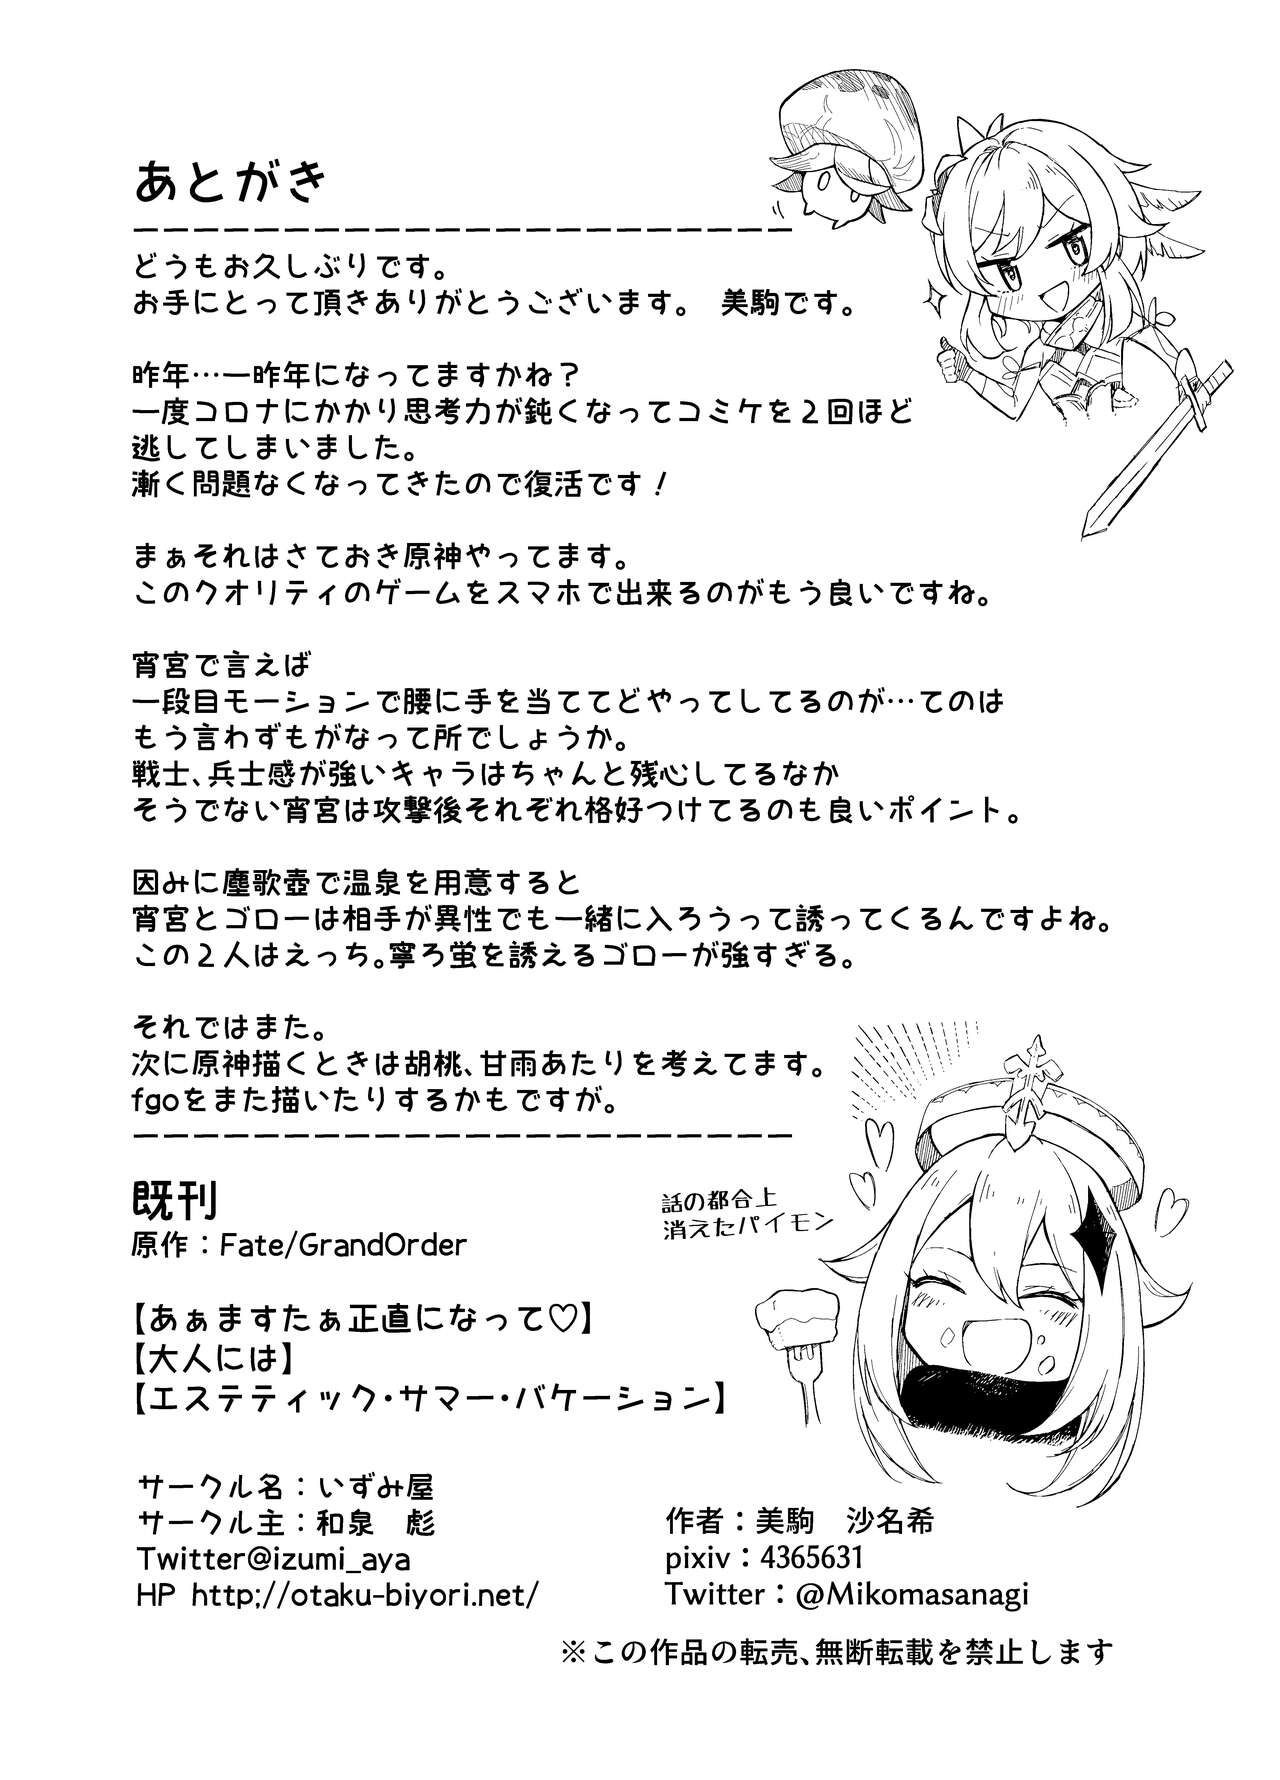 あとがき
どうもお久しぶりです。
お手にとって頂きありがとうございます。　美駒です。
昨年…一昨年になってますかね？
一度コロナにかかり思考力が鈍くなってコミケを２回ほど
逃してしまいました。
漸く問題なくなってきたので復活です！
まぁそれはさておき原神やってます。
このクオリティのゲームをスマホで出来るのがもう良いですね。
宵宮で言えば
一段目モーションで腰に手を当ててどやってしてるのが…てのは
もう言わずもがなって所でしょうか。
戦士､兵士感が強いキャラはちゃんと残心してるなか
そうでない宵宮は攻撃後それぞれ格好つけてるのも良いポイント。
因みに塵歌壺で温泉を用意すると
宵宮とゴローは相手が異性でも一緒に入ろうって誘ってくるんですよね。
この２人はえっち｡寧ろ蛍を誘えるゴローが強すぎる。
それではまた。
次に原神描くときは胡桃､甘雨あたりを考えてます。
fgoをまた描いたりするかもですが。
既刊
原作：Fate/GrandOrder
【あぁますたぁ正直になって♡】
【大人には】
【エステティック･サマー･バケーション】
話の都合上
消えたパイモン
サークル名：いずみ屋
サークル主：和泉　彪
Twitter@izumi_aya
HP http;//otaku-biyori.net/
作者：美駒　沙名希
pixiv：4365631
Twitter：@Mikomasanagi
※この作品の転売､無断転載を禁止します